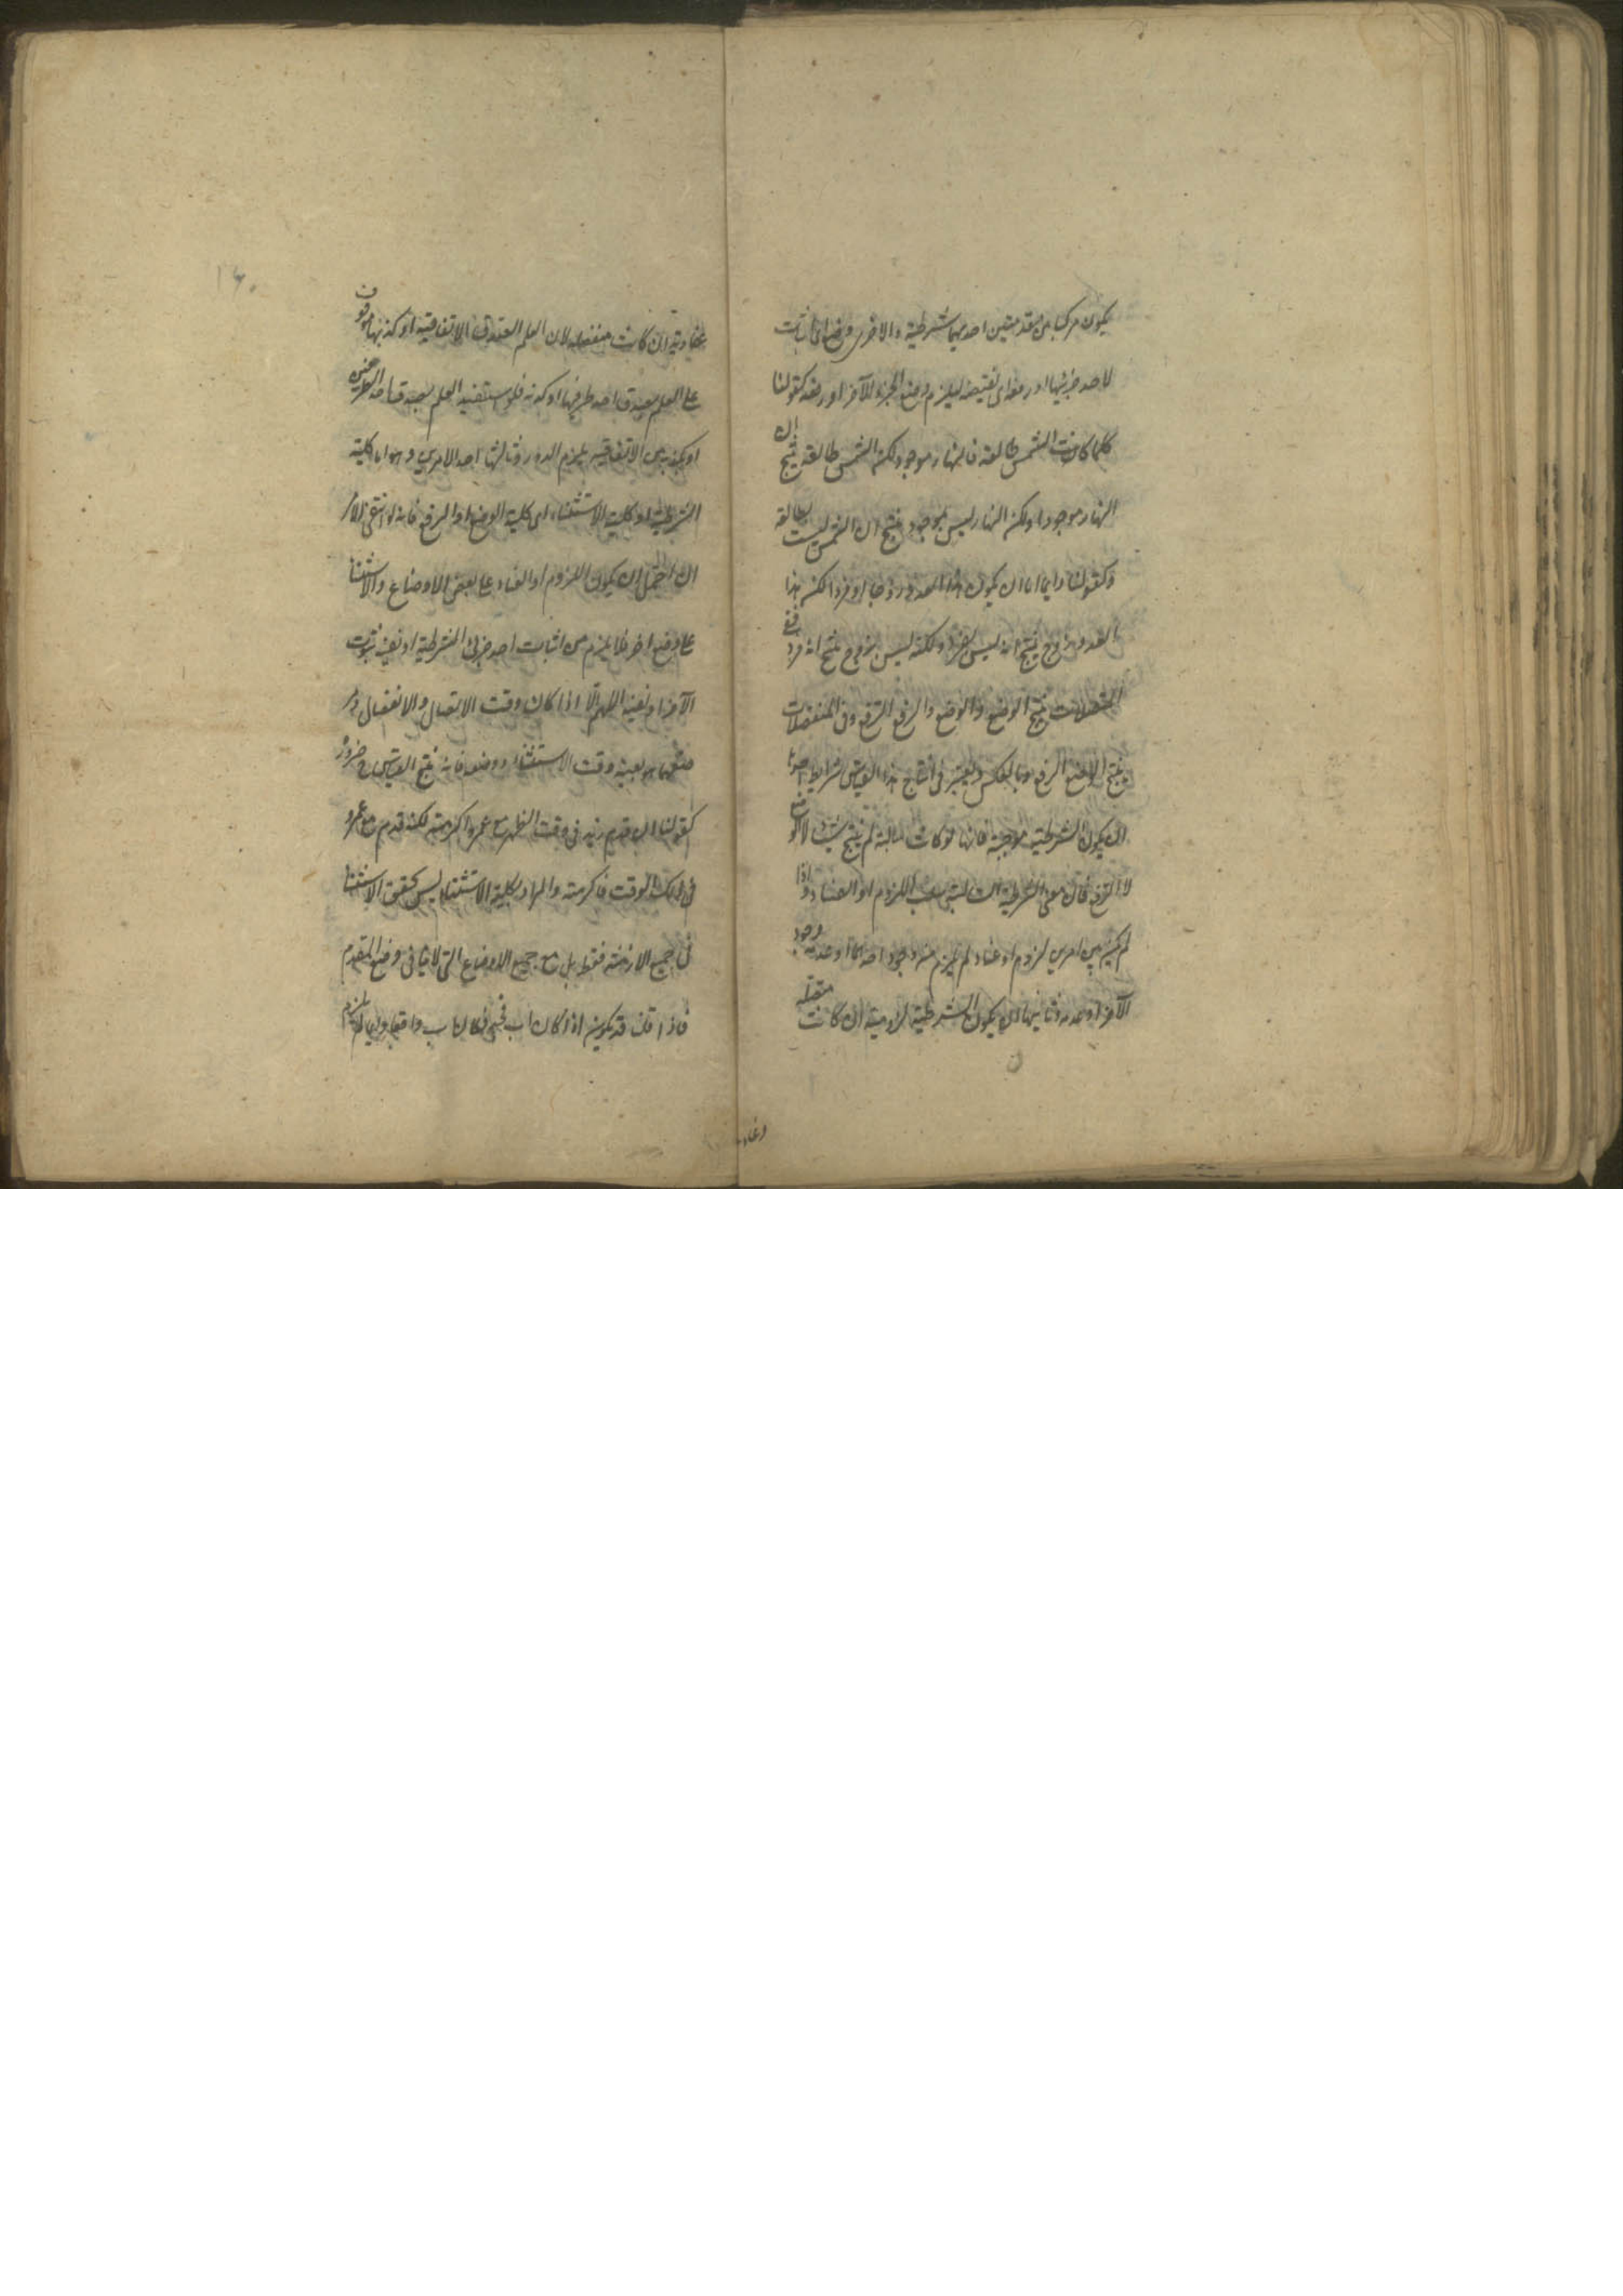 يكون مركبا من مقدمتين احديهما شرطية والاخرى وضع اى اثبات
لاحد جزئيها او رفعه اى نقيضه ليلزم وضع الجزء الآخر او رفعه كقولنا
كلما كانت الشمس طالعة فالنهار موجود لكن الشمس طالعة ينتج ان
النهار موجود او لكن النهار ليس بموجود ينتج ان الشمس ليست بطالعة
وكقولنا دايما اما ان يكون هذا العدد زوجا او فردا لكن هذا
العدد زوج ينتج انه ليس بفرد ولكنه ليس بزوج ينتج انه فرد ففى
المتصلات ينتج الوضع والوضع والرفع الرفع وفى المنفصلات
ينتج الوضع الرفع وبالعكس ويعتبر فى انتاج هذا القياس شرايط احدها
ان يكون الشرطية موجبة فانها لو كانت سالبة لم ينتج شيئا لا الوضع
لا الرفع فان معنى الشرطية السالبة سلب اللزوم او العناد واذا
لم يكن بين امرين لزوم او عناد لم يلزم من وجود احدهما او عدمه وجود
الآخر او عدمه وثانيها ان يكون الشرطية لزومية ان كانت متصلة
وعناد
١٦٠
عنادية ان كانت منفصلة لان العلم بصدق الاتفاقية او كذبها موقوف
على العلم بصدق احد طرفيها او كذبه فلو استفيد العلم بصدق احد الطرفين
او بكذبه من الاتفاقية يلزم الدور وثالثها احد الامرين وهو اما كلية
الشرطية او كلية الاستثناء اى كلية الوضع او الرفع فانه لو انتفى الامر
ان احتمل ان يكون اللزوم او العناد على بعض الاوضاع والاستثنا
على وضع اخر فلا يلزم من اثبات احد جزئى الشرطية او نفيه ثبوت
الآخر او نفيه اللهم الا اذا كان وقت الاتصال والانفصال و
وضعهما هو بعينه وقت الاستثناء ووضعه فانه ينتج القياس ضرورة
كقولنا ان قدم زيد فى وقت الظهر مع عمرو اكرمته لكنه قدم مع عمرو
فى ذلك الوقت فاكرمته والمراد بكلية الاستثناء ليس تحقق الاستثنا
فى جميع الازمنة فقط بل مع جميع الاوضاع التى لا تنافى وضع المقدم
فاذا قلنا قد يكون اذا كان اب فجد وكان اب واقعا دايما لم يلزم